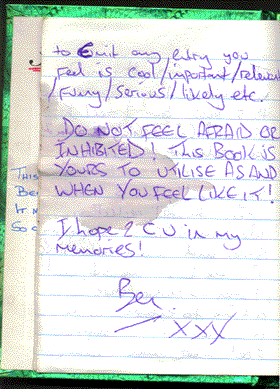 to Emit any entry you
feel is cool/important/relevent
/Funny/Serious/likely etc.
DO NOT FEEL AFRAID OR
INHIBITED! THIS BOOK IS
YOURS TO UTILISE AS AND
WHEN YOU FEEL LIKE IT!
I hope 2 C U in my
memories!
Ben
XXX
THIS